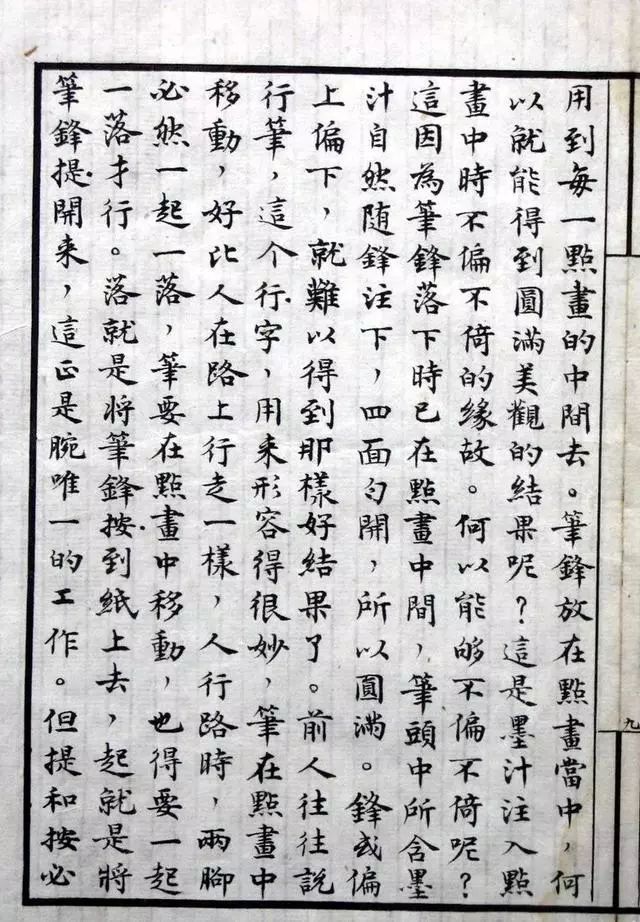 用到每一點畫的中間去。筆鋒放在點畫當中，何
以就能得到圓滿美觀的结果呢？這是墨汁注入點
畫中時不偏不倚的緣故。何以能够不偏不倚呢？
這因為筆鋒落下時已在點畫中間，筆頭中所含墨
汁自然随鋒注下，四面勻開，所以圓滿。鋒或偏
上偏下，就難以得到那樣好结果了。前人往往説
行筆，這个行字，用来形容得很妙，筆在點畫中
移動，好比人在路上行走一樣，人行路時，兩腳
必然一起一落，筆要在點畫中移動，也得要一起
一落才行。落就是将筆鋒按到紙上去，起就是將
筆鋒提開来，這正是腕唯一的工作。但提和按必
九